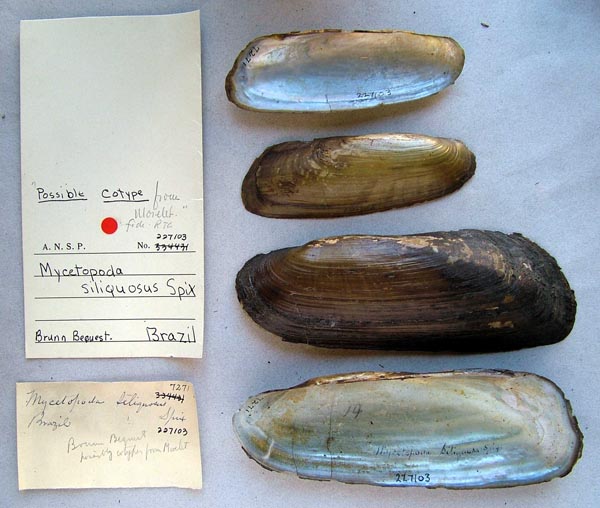 "Possible Cotype from
Morelet."
fide RTA
227103
A.N.S.P. No. 334431
Mycetopoda
siliquosus Spix
Brunn Bequest. Brazil
7271
Mycetopoda siliquosus 334431
Brazil Spix
227103
Brunn Bequest
possibly cotypes from Morelet
7271
227103
14
Mycetopoda siliquosus Spix
227103